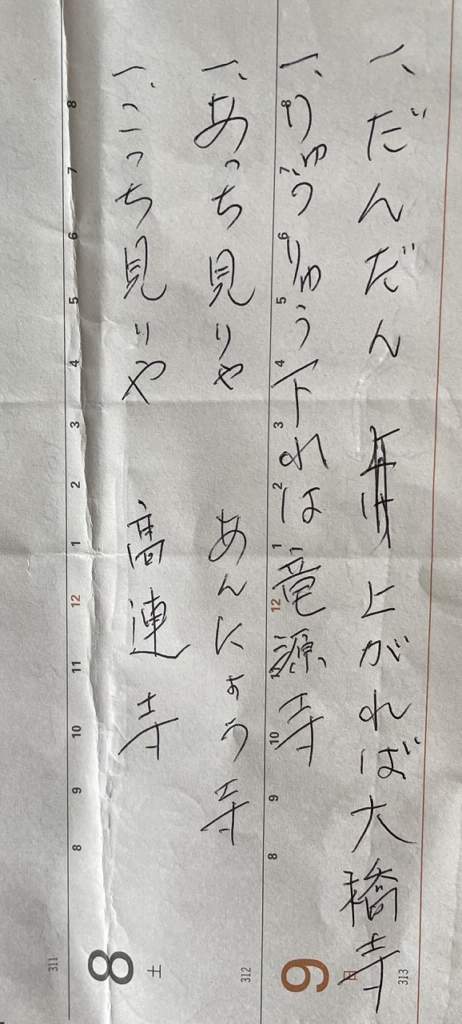 一、だんだん 上がれば大橋寺
一、りゅうりゅう下れは竜源寺
一、あっち見りゃ あんにょう寺
一、こっち見りゃ 高連寺
8 7 6 5 4 3 2 1 12 11 10 9 8
8 6 5 4 3 2 1 12 10 9 8
311
8 土
312
9 日
313